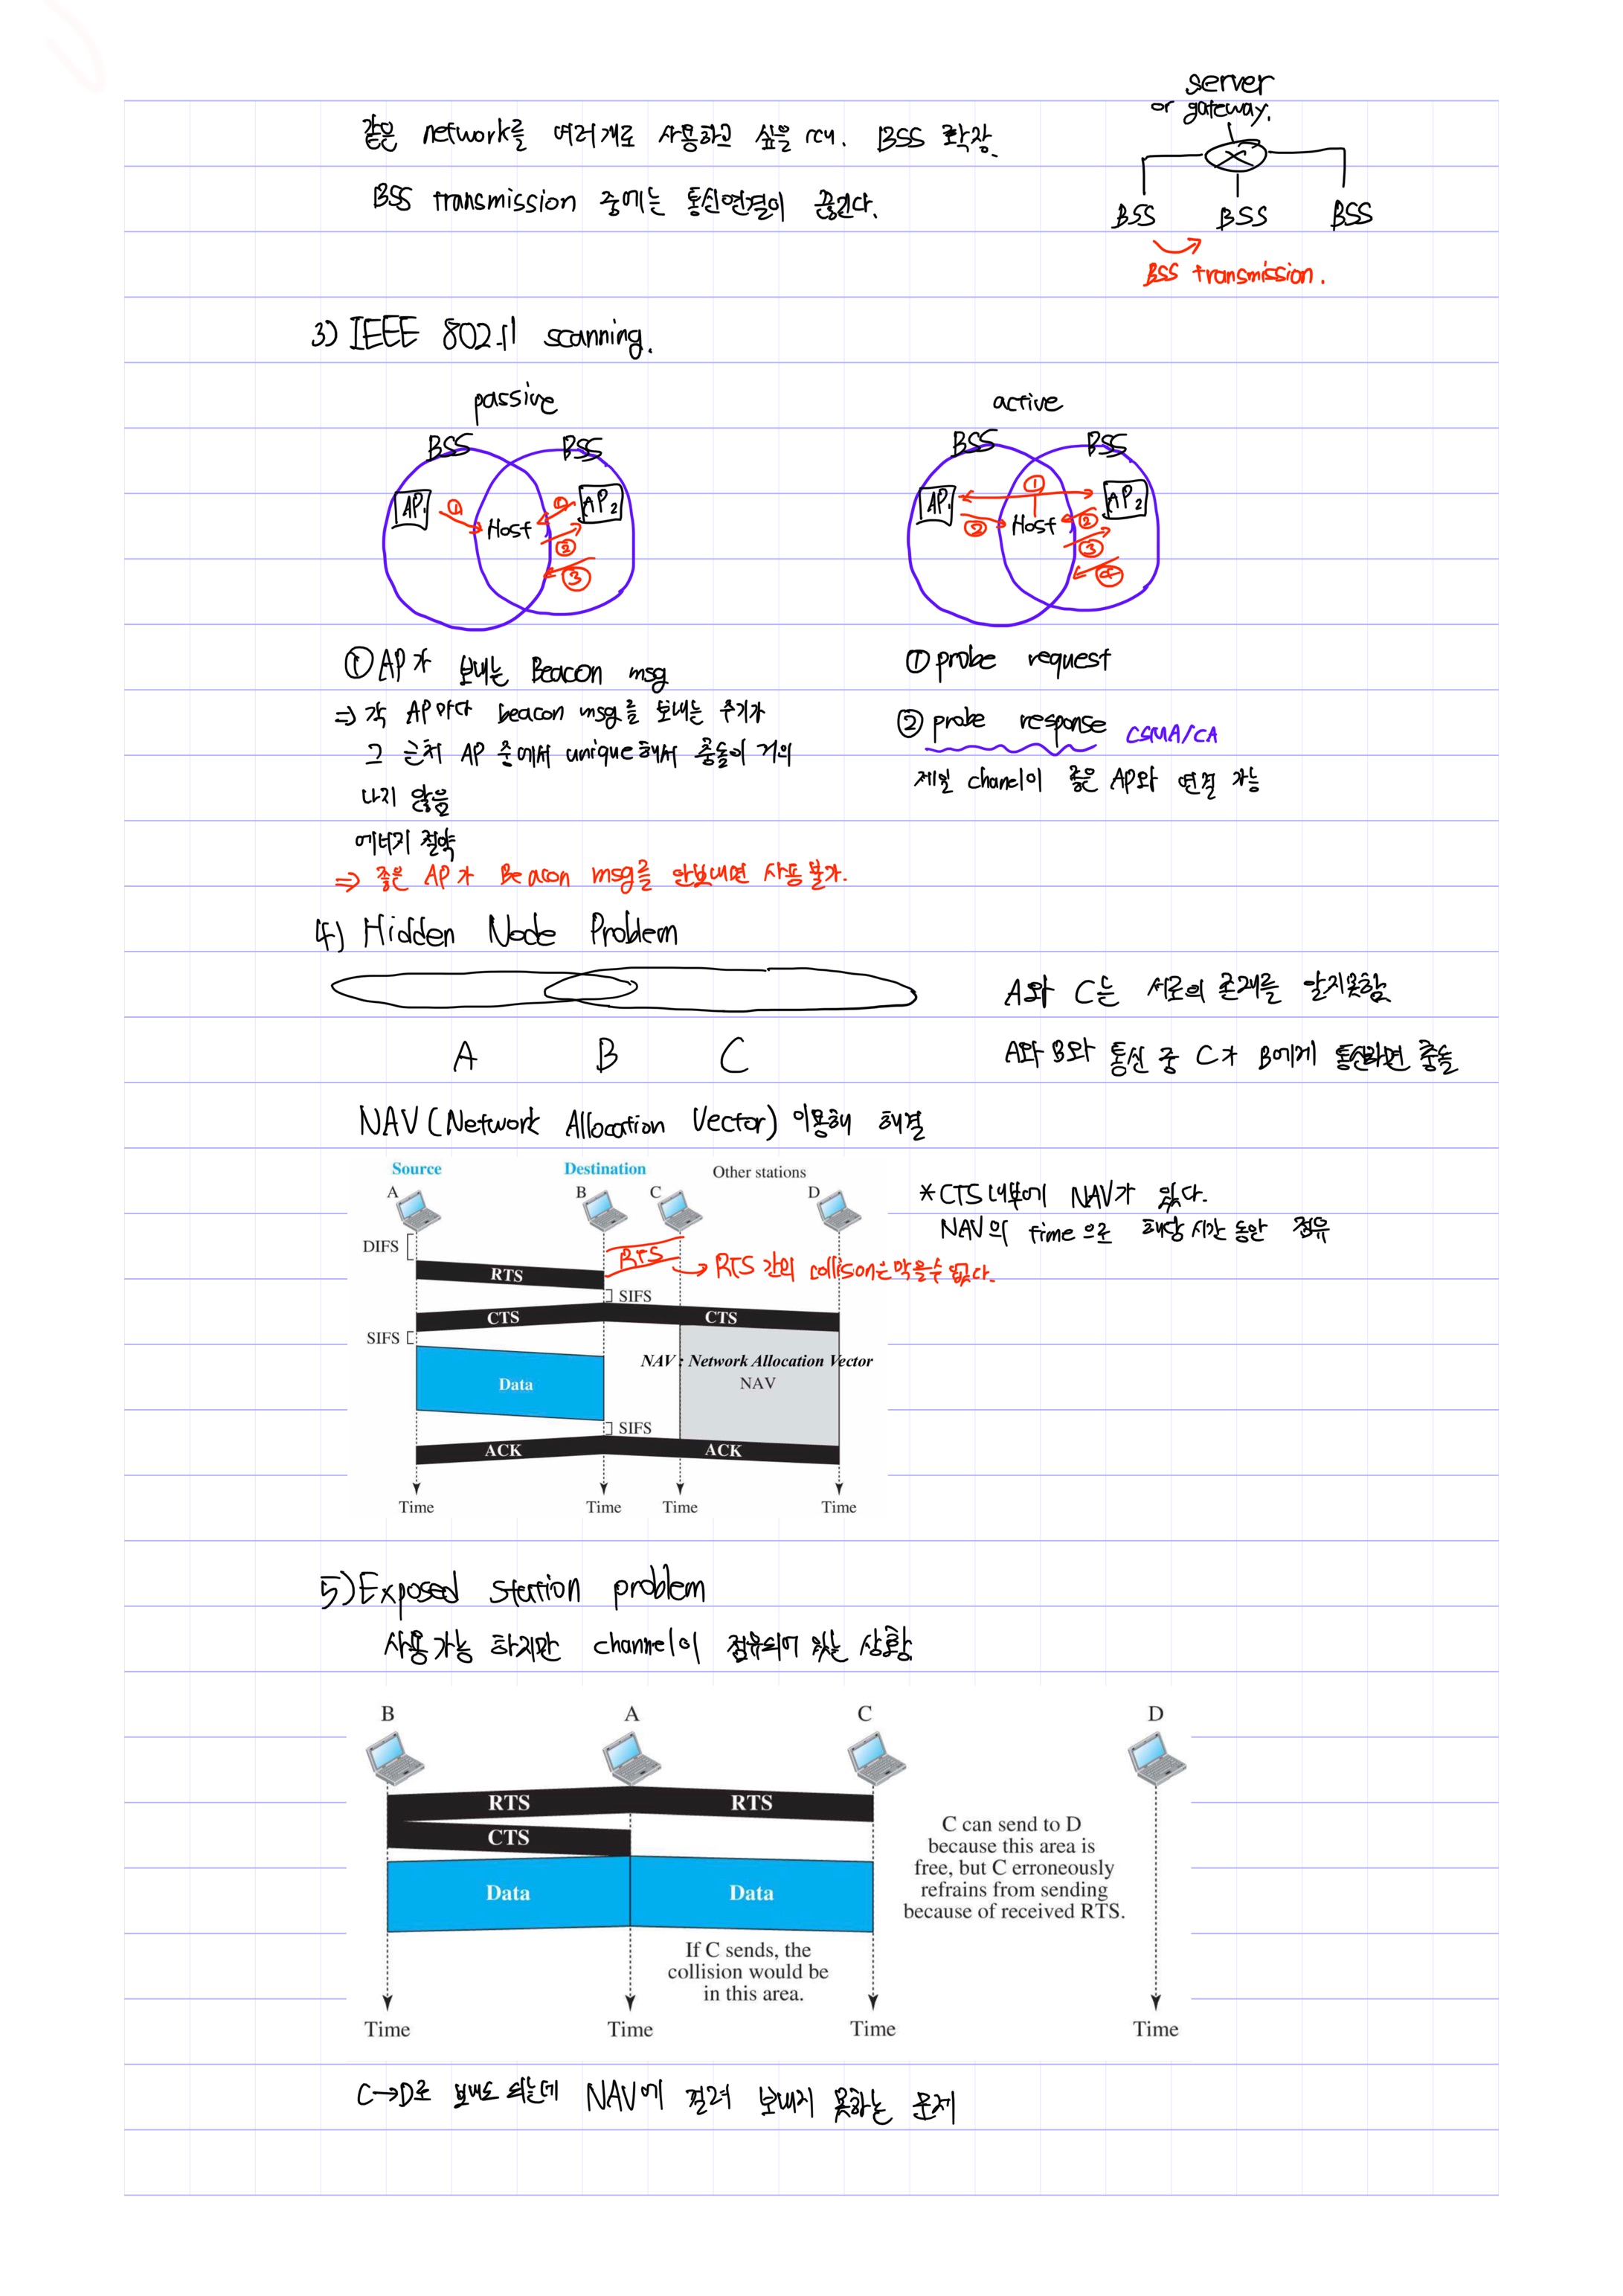 server
or gateway.
같은 network를 여러개로 사용하고 싶을 때. BSS 확장.
BSS transmission 중에는 통신연결이 끊긴다.
BSS BSS BSS
BSS transmission.
3) IEEE 802.11 scanning.
passive
BSS BSS
AP1 ① ① AP2
Host
②
③
active
BSS BSS
AP1 ① AP2
② Host ②
③
④
① AP가 보내는 Beacon msg
⇒ 각 AP마다 beacon msg를 보내는 주기가
그 근처 AP 중에서 unique해서 충돌이 거의
나지 않음
에너지 절약
⇒ 좋은 AP가 Beacon msg를 안보내면 사용 불가.
① probe request
② probe response CSMA/CA
제일 chanel이 좋은 AP와 연결 가능
4) Hidden Node Problem
A B C
A와 C는 서로의 존재를 알지못함
A와 B와 통신 중 C가 B에게 통신하면 충돌
NAV(Network Allocation Vector) 이용해 해결
Source Destination Other stations
A B C D
DIFS
RTS
RTS
→ RTS 간의 collison은 막을수 없다.
SIFS
CTS CTS
SIFS
NAV : Network Allocation Vector
Data NAV
SIFS
ACK ACK
Time Time Time Time
*CTS 내부에 NAV가 있다.
NAV의 time으로 해당 시간 동안 점유
5) Exposed station problem
사용가능 하지만 channel이 점유되어 있는 상황
B A C D
RTS RTS
CTS
Data Data
C can send to D
because this area is
free, but C erroneously
refrains from sending
because of received RTS.
If C sends, the
collision would be
in this area.
Time Time Time Time
C→D로 보내도 되는데 NAV에 걸려 보내지 못하는 문제